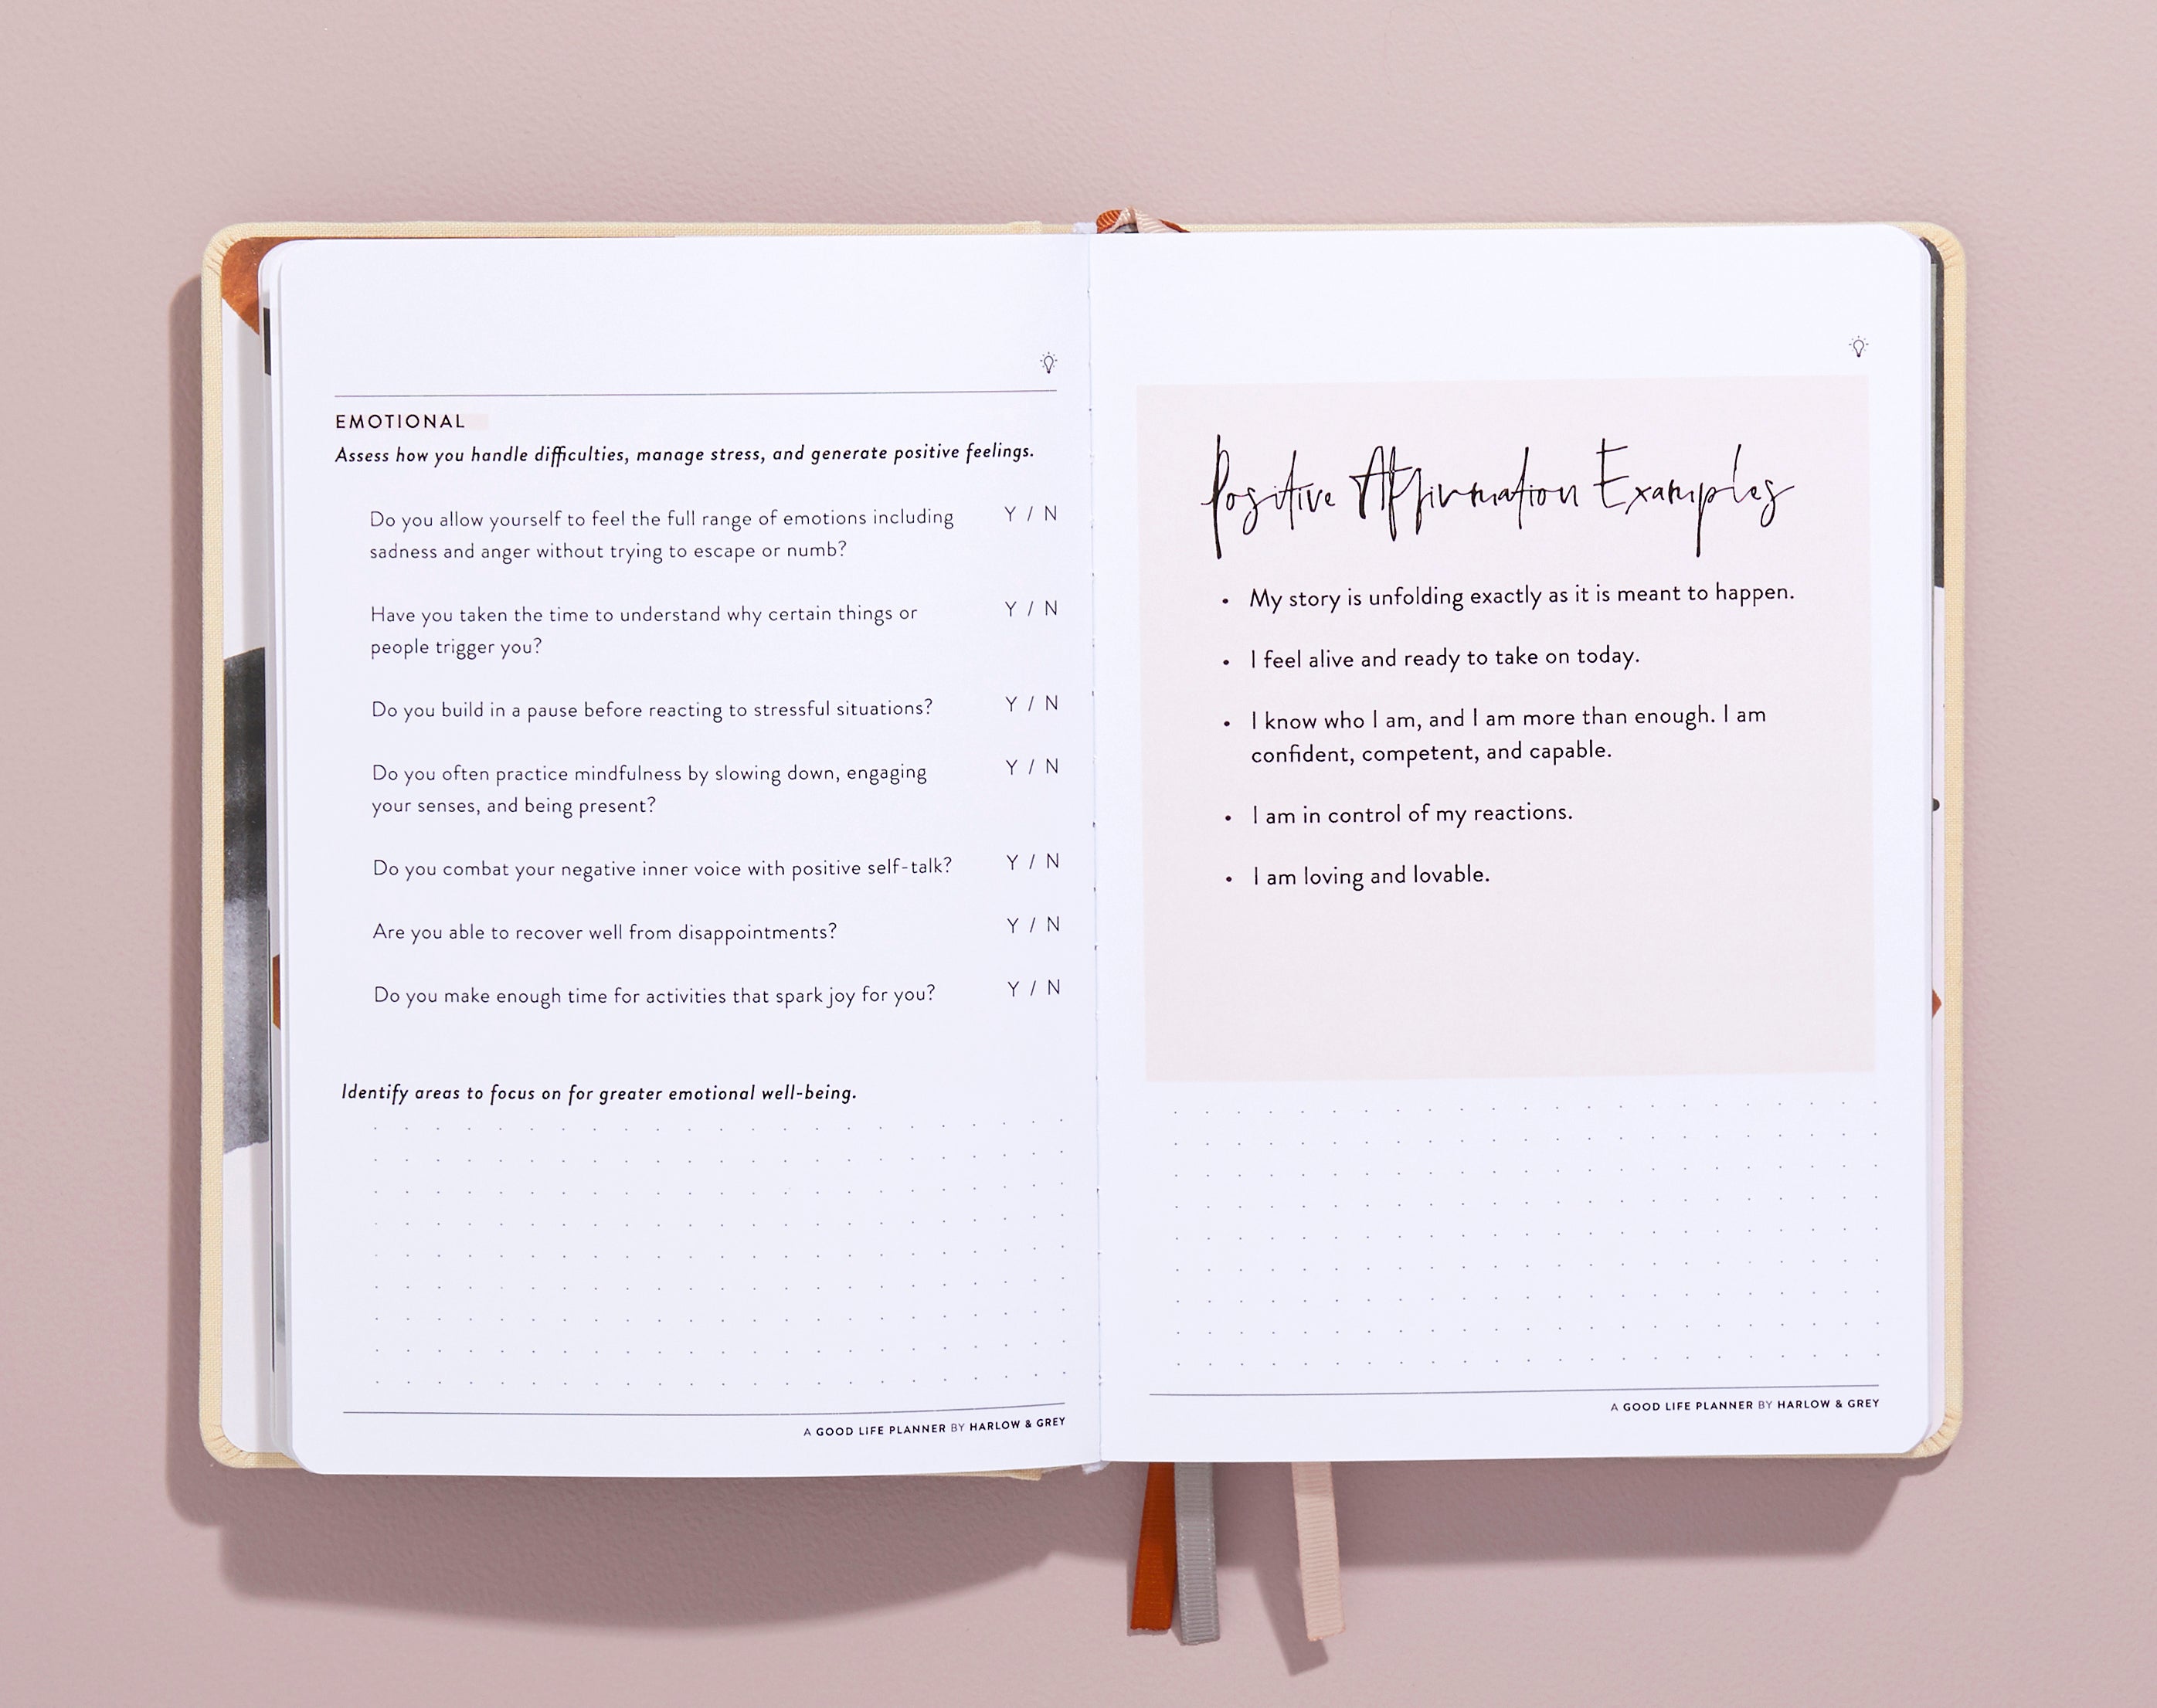 EMOTIONAL
Assess how you handle difficulties, manage stress, and generate positive feelings.
Do you allow yourself to feel the full range of emotions including Y / N
sadness and anger without trying to escape or numb?
Have you taken the time to understand why certain things or Y / N
people trigger you?
Do you build in a pause before reacting to stressful situations? Y / N
Do you often practice mindfulness by slowing down, engaging Y / N
your senses, and being present?
Do you combat your negative inner voice with positive self-talk? Y / N
Are you able to recover well from disappointments? Y / N
Do you make enough time for activities that spark joy for you? Y / N
Identify areas to focus on for greater emotional well-being.
A GOOD LIFE PLANNER BY HARLOW & GREY
Positive Affirmation Examples
• My story is unfolding exactly as it is meant to happen.
• I feel alive and ready to take on today.
• I know who I am, and I am more than enough. I am
confident, competent, and capable.
• I am in control of my reactions.
• I am loving and lovable.
A GOOD LIFE PLANNER BY HARLOW & GREY